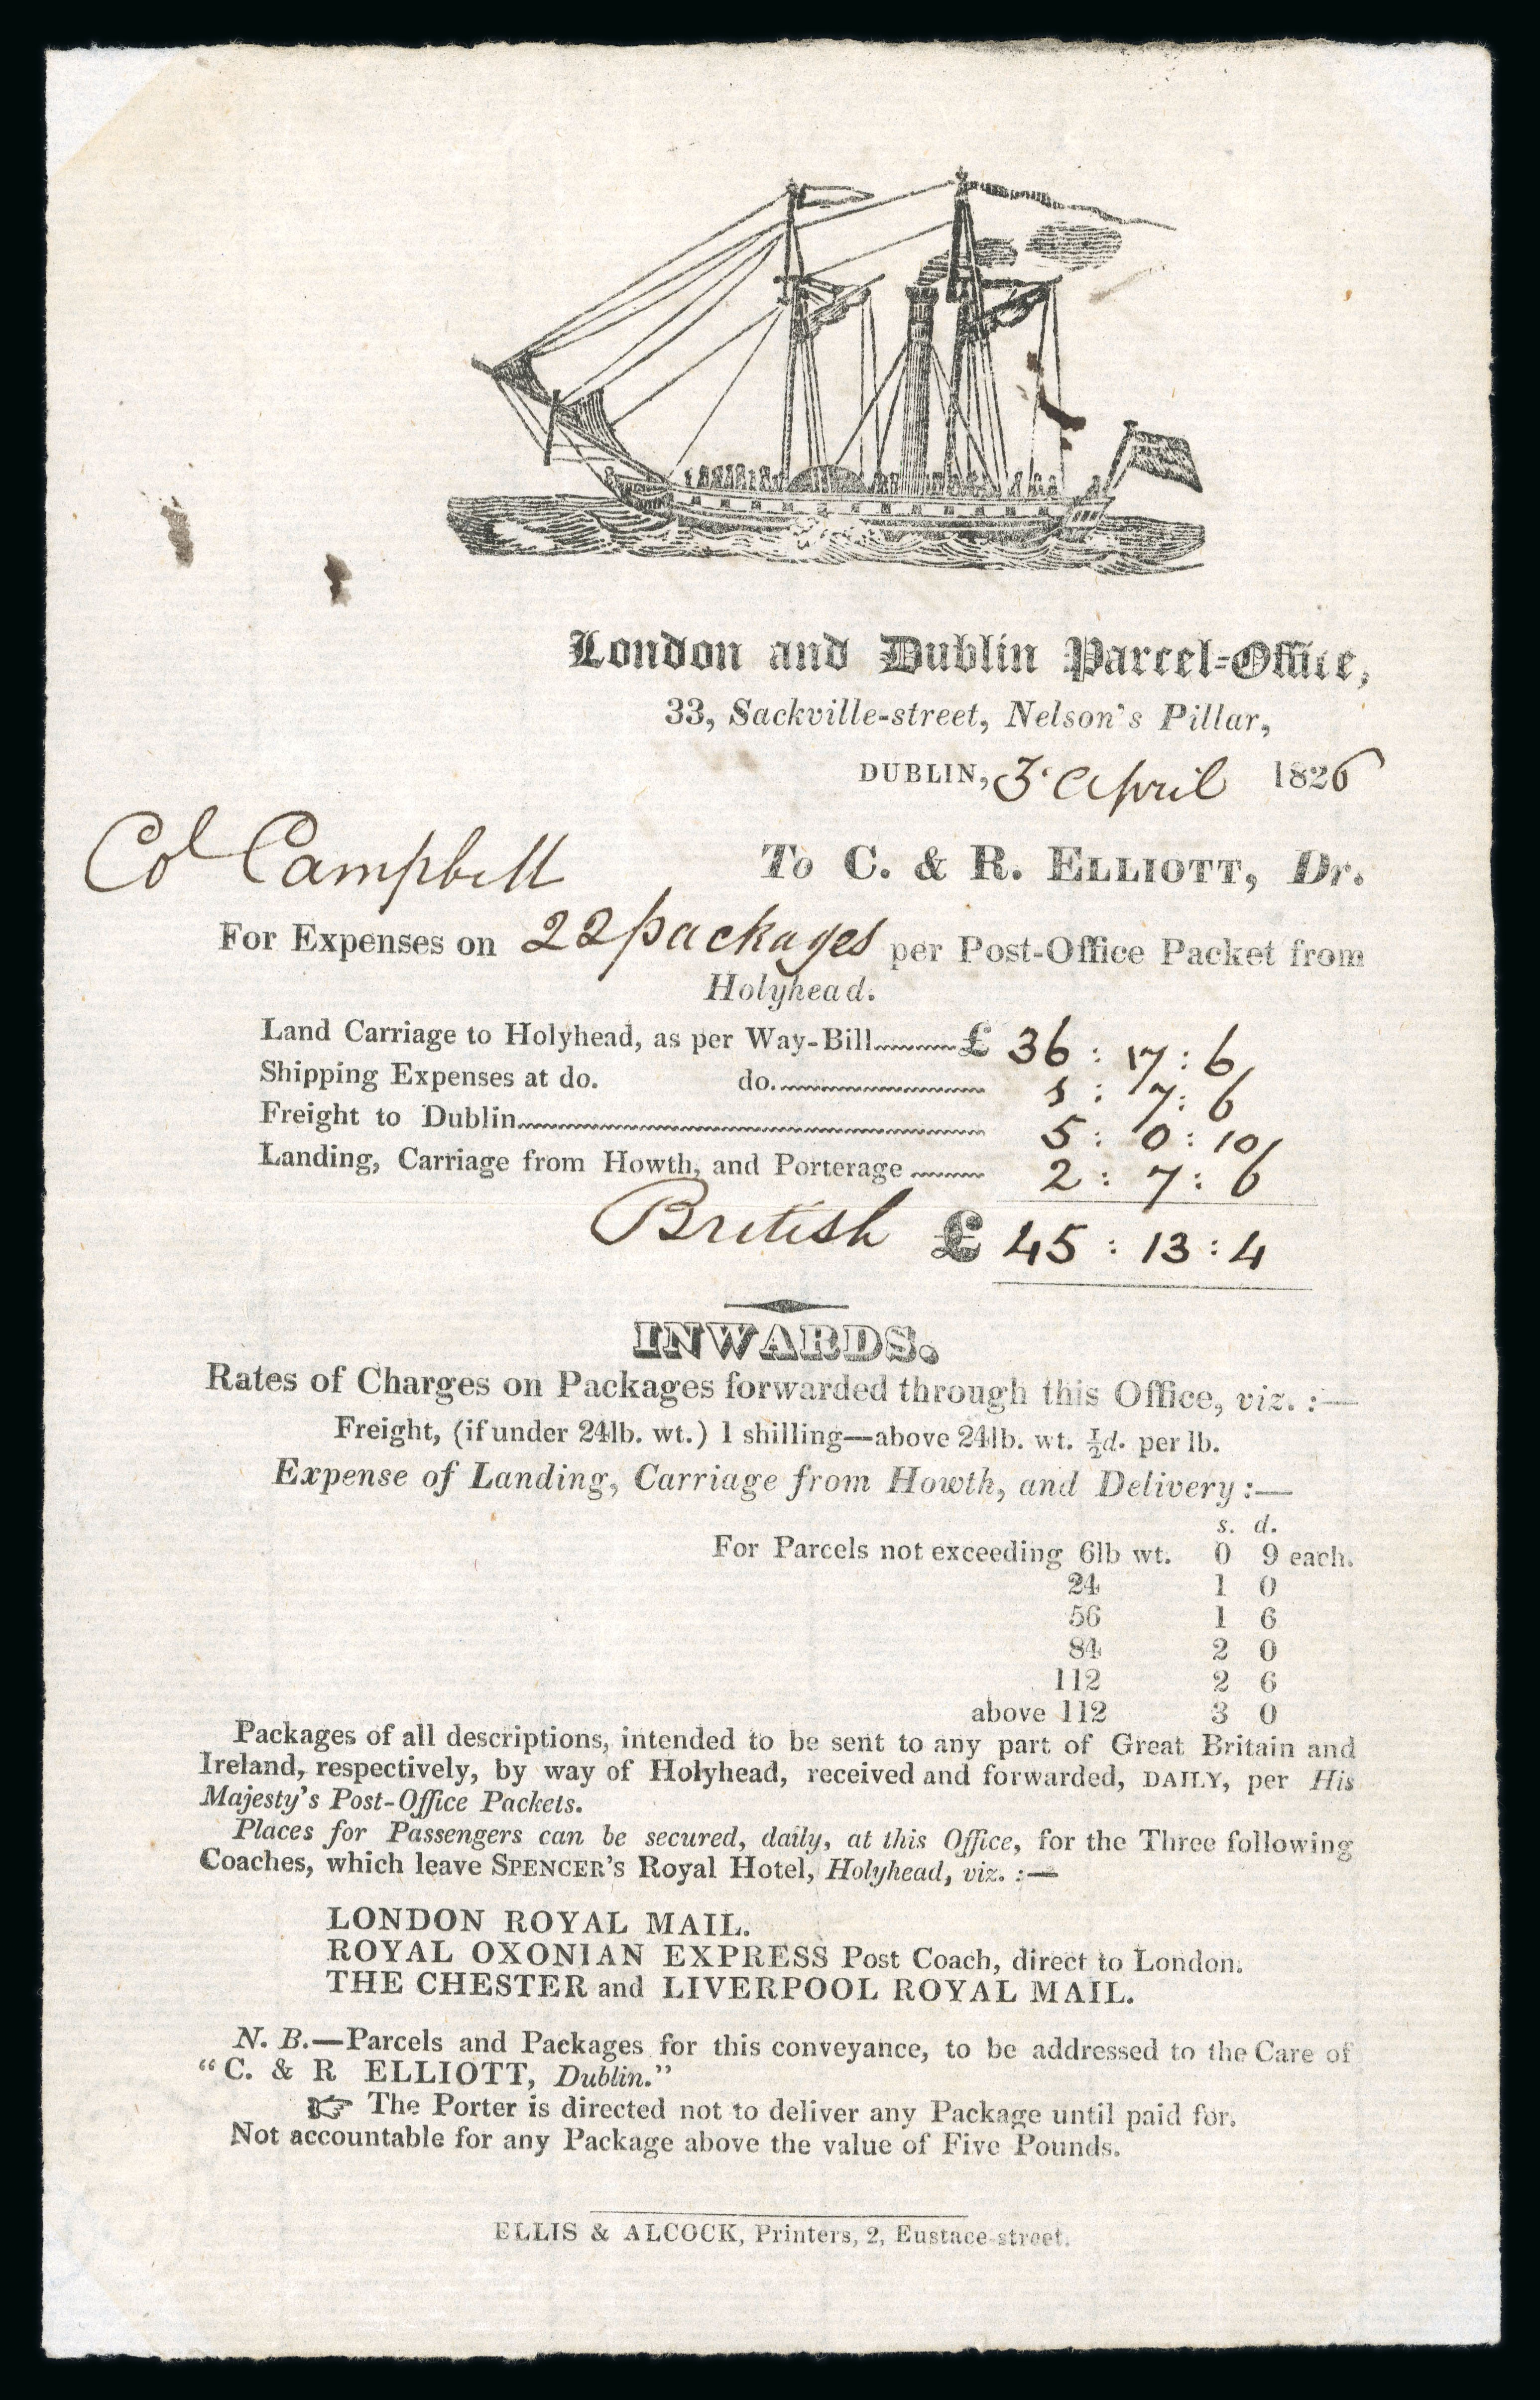 London and Dublin Parcel-Office,
33, Sackville-street, Nelson's Pillar,
DUBLIN, 3 April 1826
Col Campbell
To C. & R. ELLIOTT, Dr.
For Expenses on 22 packages per Post-Office Packet from
Holyhead.
Land Carriage to Holyhead, as per Way-Bill £ 36 : 17 : 6
Shipping Expenses at do. do. 1 : 7 : 6
Freight to Dublin 5 : 0 : 10
Landing, Carriage from Howth, and Porterage 2 : 7 : 6
British £ 45 : 13 : 4
INWARDS.
Rates of Charges on Packages forwarded through this Office, viz. :—
Freight, (if under 24lb. wt.) 1 shilling—above 24lb. wt. ½d. per lb.
Expense of Landing, Carriage from Howth, and Delivery :—
s. d.
For Parcels not exceeding 6lb wt. 0 9 each.
24 1 0
56 1 6
84 2 0
112 2 6
above 112 3 0
Packages of all descriptions, intended to be sent to any part of Great Britain and
Ireland, respectively, by way of Holyhead, received and forwarded, DAILY, per His
Majesty's Post-Office Packets.
Places for Passengers can be secured, daily, at this Office, for the Three following
Coaches, which leave SPENCER'S Royal Hotel, Holyhead, viz. :—
LONDON ROYAL MAIL.
ROYAL OXONIAN EXPRESS Post Coach, direct to London.
THE CHESTER and LIVERPOOL ROYAL MAIL.
N. B.—Parcels and Packages for this conveyance, to be addressed to the Care of
"C. & R ELLIOTT, Dublin."
☞ The Porter is directed not to deliver any Package until paid for.
Not accountable for any Package above the value of Five Pounds.
ELLIS & ALCOCK, Printers, 2, Eustace-street.